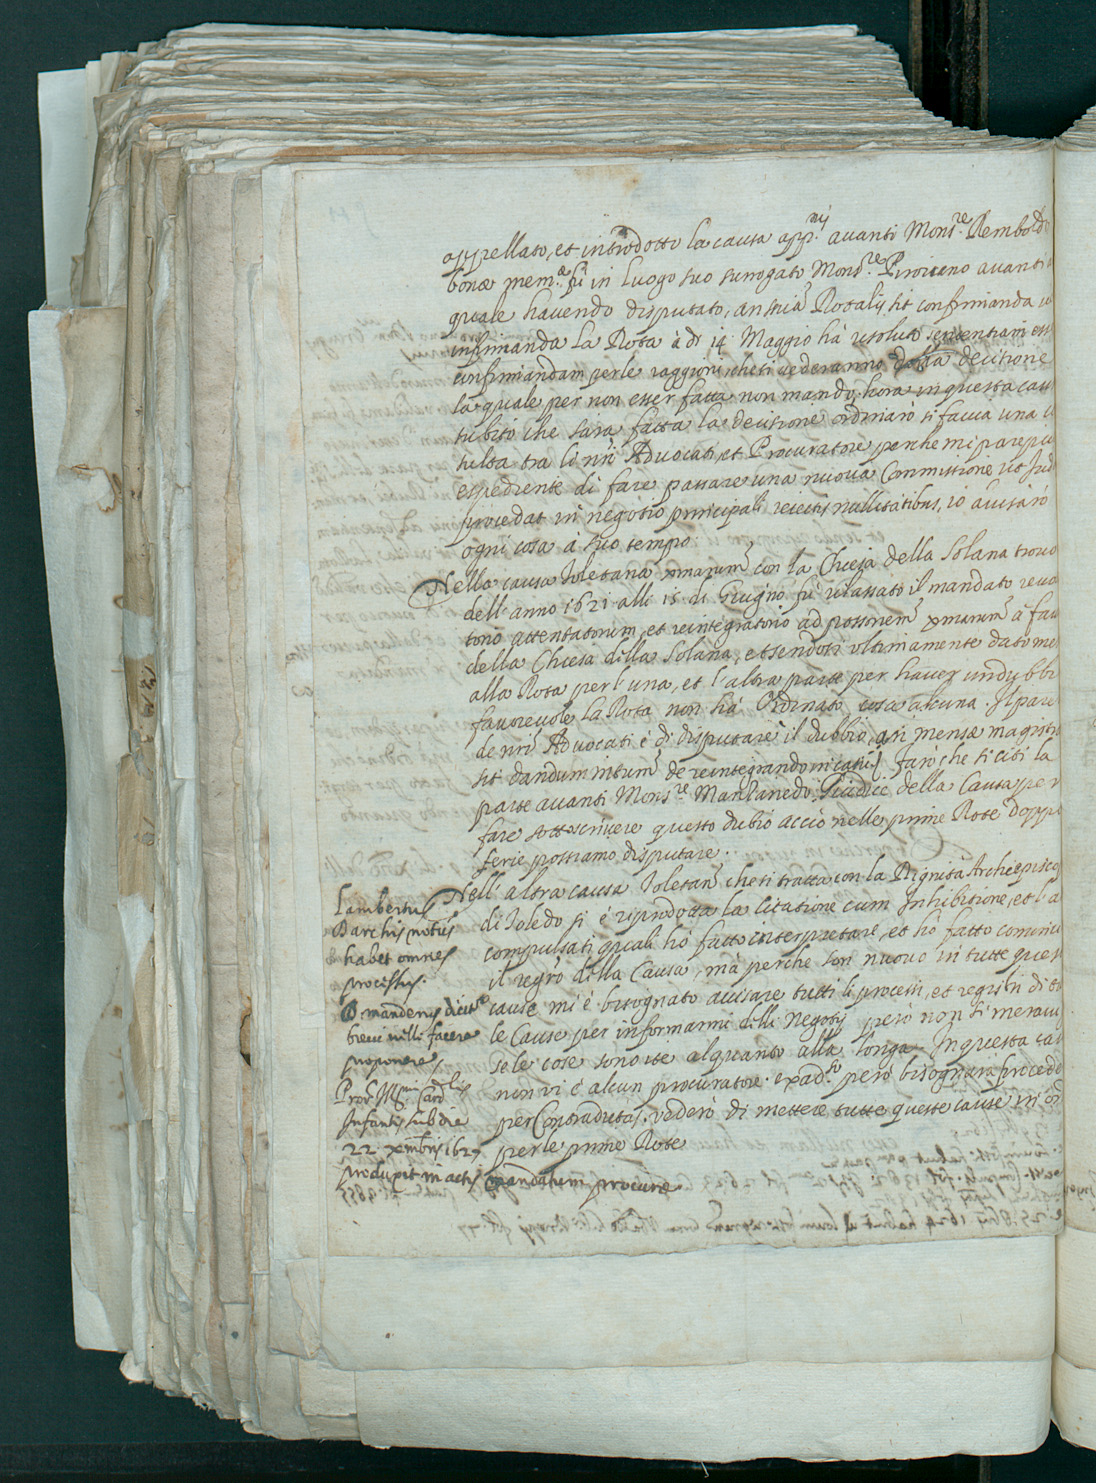 appellato, et introdotto la causa app.nis avanti Mons.re Rembold
bonæ mem.æ fù in luogo suo surrogato Mons.re Pirovano avanti
quale havendo disputato, an snia Rotalis sit confirmanda
infirmanda la Rota à di 14 Maggio hà resoluto sententiam esse
confirmandam per le raggioni, che si vederanno dalla decisione
la quale per non esser fatta non mando, hora in questa caus
subito che sarà fatta la decisione ordinarò si faccia una
sulta tra li nri Advocati, et Procuratore perche mi pare più
espediente di fare passare una nuova Commissione ut Jud
procedat in negotio principali reiectis nullitatibus, io avisarò
ogni cosa à suo tempo.
Nella causa Toletana xmarum con la Chiesa della Solana trovo
dell'anno 1621 alli 15 di Giugno fù rilassato il mandato revo
torio attentatorum, et reintegratorio ad possonem xmarum à fau
della Chiesa della Solana, essendosi ultimamente dato me
alla Rota per l'una, et l'altra parte per haver un dubbi
favorevole la Rota non hà Ordinato cosa alcuna. Il pare
de nri Advocati è di disputare il dubbio, an mensæ magistr
sit dandum de reintegrando farò che si citi la
parte avanti Mons.re Manzanedo Giudice della Causa per
fare sottoscrivere questo dubio acciò nelle prime Rote doppo
ferie possiamo disputare.
Nell'altra causa Toletan che si tratta con la Dignità Archiepisco
di Toledo si è riprodotta la Citatione cum Inhibitione, et l'a
compulsati quali hò fatto interpretare, et hò fatto
il regro della Causa, mà perche son nuovo in tutte ques
cause mi è bisognato avisare tutti li processi, et registri di
le Cause per informarmi delli Negotij però non si merav
se le cose sono ite alquanto alla longa. In questa cau
non vi è alcun procuratore ex ad.so però bisognarà procede
per Contraductas. vederò di mettere tutte queste cause in or
per le prime Rote
Lambertus
Barchis notus
habet omnes
processus.
mandenus dicit
breui
proponere
Pror Ill.mi Card.lis
Infantis sub die
22 xmbris 1627
produxit in actis mandatum procuræ